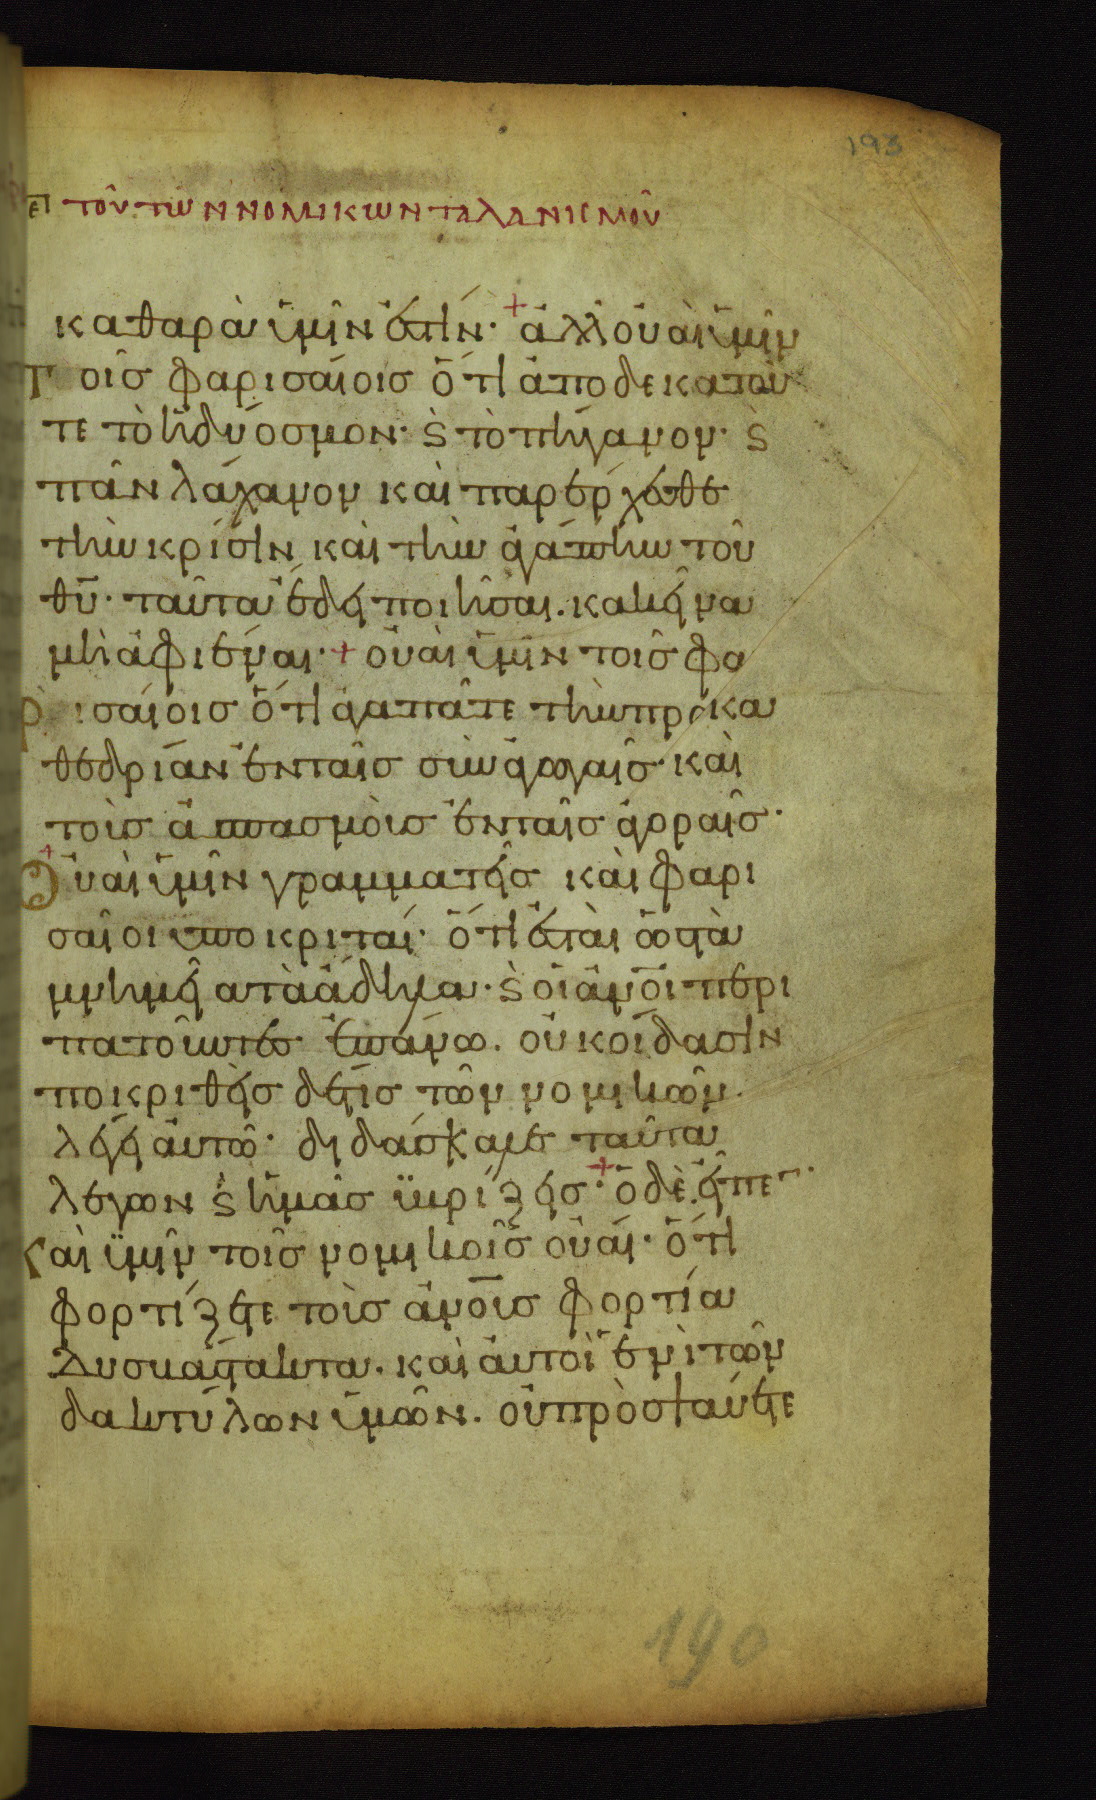 193
τοῦ τῶν νομικῶν ταλανισμοῦ
καθαρὰ ὑμῖν ἐστίν· + ἀλλ οὐαὶ ὑμῖν
τοῖς φαρισαίοις ὅτι ἀποδεκατοῦ
τε τὸ ἡδύοσμον· ϛ τὸ πήγανον· ϛ
πᾶν λάχανον καὶ παρέρχεσθε
τὴν κρίσιν καὶ τὴν ἀγάπην τοῦ
θυ̅· ταῦτα ἔδει ποιῆσαι. κακεῖνα
μὴ ἀφιέναι· + οὐαὶ ὑμῖν τοῖς φα
ρισαίοις ὅτι ἀγαπᾶτε τὴν προκα
θεδρίαν ἐν ταῖς συναγωγαῖς· καὶ
τοὶς ἀσπασμὸις ἐν ταῖς ἀγοραῖς·
+ Οὐαὶ ὑμῖν γραμματεῖς καὶ φαρι
σαῖοι υποκριταί· ὅτι ἐσταὶ ὡς τὰ
μνημεῖα τὰ ἄδηλα· ϛ οἱ ἀν̅οι περι
πατοῦντες ἐπάνω. οὐκ οίδασιν
ποκριθεὶς δε τις τῶν νομικῶν.
λέγει αὐτῶ· διδάσκαλε ταῦτα
λέγων ϛ ἡμᾶς ϋβρίζεις· + ὁ δὲ εἶπε·
Και ϋμῖν τοῖς νομικοῖς οὐαί· ὅτι
φορτίζετε τοὶς ἀν̅οις φορτία
δυσβάστακτα. καὶ ἀυτοὶ ἑνὶ τῶν
δακτύλων ὑμῶν. οὐ προσψαύετε
190